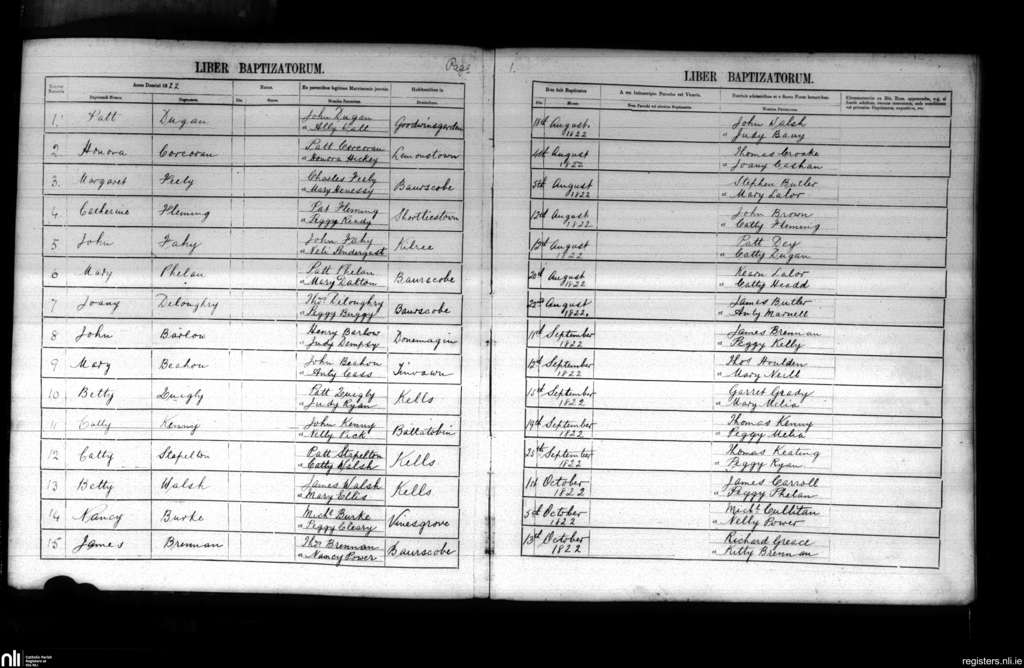 LIBER BAPTIZATORUM.
Page
Anno Domini 1822
Ex parentibus legitimo Matrimonio junctis
Habitantibus in
1 Patt Dugan John Dugan Goodwinsgarden
" Ally Wall
2 Honora Corcoran Patt Corcoran Lemonstown
" Honora Hickey
3. Margaret Feely Charles Feely Baurscobe
" Mary Henessy
4 Catherine Fleming Pat Fleming Shortliestown
" Peggy Keady
5 John Fahy John Fahy Kilree
" Neli Pendergast
6 Mary Phelan Patt Phelan Baurscobe
" Mary Dalton
7 Joany Deloughry Thos Deloughry Baurscobe
" Peggy Buggy
8 John Barlow Henry Barlow Donemagin
" Judy Dempsy
9 Mary Beahon John Beahon
" Anty Cass
10 Betty Quigly Patt Quigly Kells
" Judy Ryan
11 Catty Kenny John Kenny Ballatobin
" Nelly Vick
12 Catty Stapelton Patt Stapelton Kells
" Catty Walsh
13 Betty Walsh James Walsh Kells
" Mary Ellis
14 Nancy Burke Michl. Burke Vinesgrove
" Peggy Cleary
15 James Brennan Thos Brennan Baurscobe
" Nancy Power
1.
LIBER BAPTIZATORUM.
Die Mensis
August. John Walsh
1822 " Judy Barry
4th August Thomas Croake
1822 " Joany Cashan
5th August Stephen Butler
1822 " Mary Lalor
12th August John Brown
1822 " Catty Fleming
August Patt Day
1822 " Catty Dugan
20th August Kearn Lalor
1822 " Catty Headd
25th August James Butler
1822. " Anty Marnell
11th September James Brennan
1822 " Peggy Kelly
September Thos Houlden
1822 " Mary Neill
15th September Garret Grady
1822 " Mary Melia
19th September Thomas Kenny
1822 " Peggy Melia
25th September Thomas Keating
1822 " Peggy Ryan
1st October James Carroll
1822 " Peggy Phelan
5th October Michl. Cullitan
1822 " Nelly Power
13th October Richard Greace
1822 " Kitty Brennan
nli Catholic Parish
Registers at
the NLI
registers.nli.ie